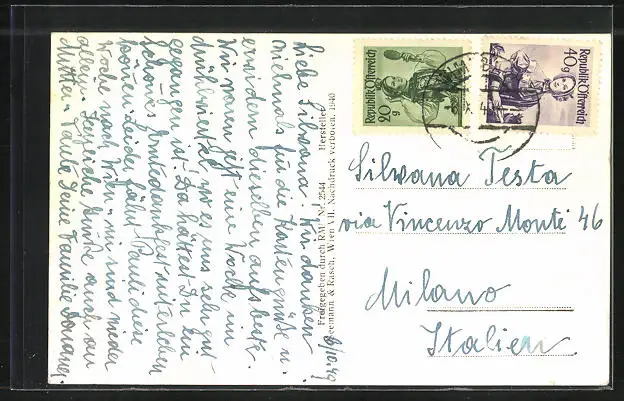 Liebe Silvana. Wir danken
vielmals für die Kartengrüße u.
erwidern dieselben aufs beste.
Wir waren jetzt eine Woche im
Mühlviertel wo es uns sehr gut
gegangen ist. Da hättest Du ein
schönes Erntedankfest miterleben
können. Leider fährt Pauli diese
Woche nach Wien wir sind wieder
allein. Herzliche Grüße auch an
Mutter u. Tante Deine Familie
6/10.49
Freigegeben durch RM / Nr. 2544 Hersteller:
Seemann & Rasch, Wien VII. Nachdruck verboten. 1940
Republik Österreich
20
g
40
g
Republik Österreich
Silvana Testa
via Vincenzo Monti 46
Milano
Italien